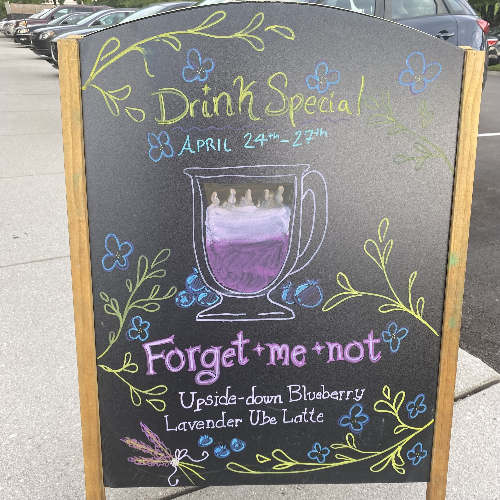 Drink Special
April 24th-27th
Forget-me-not
Upside-down Blueberry
Lavender Ube Latte